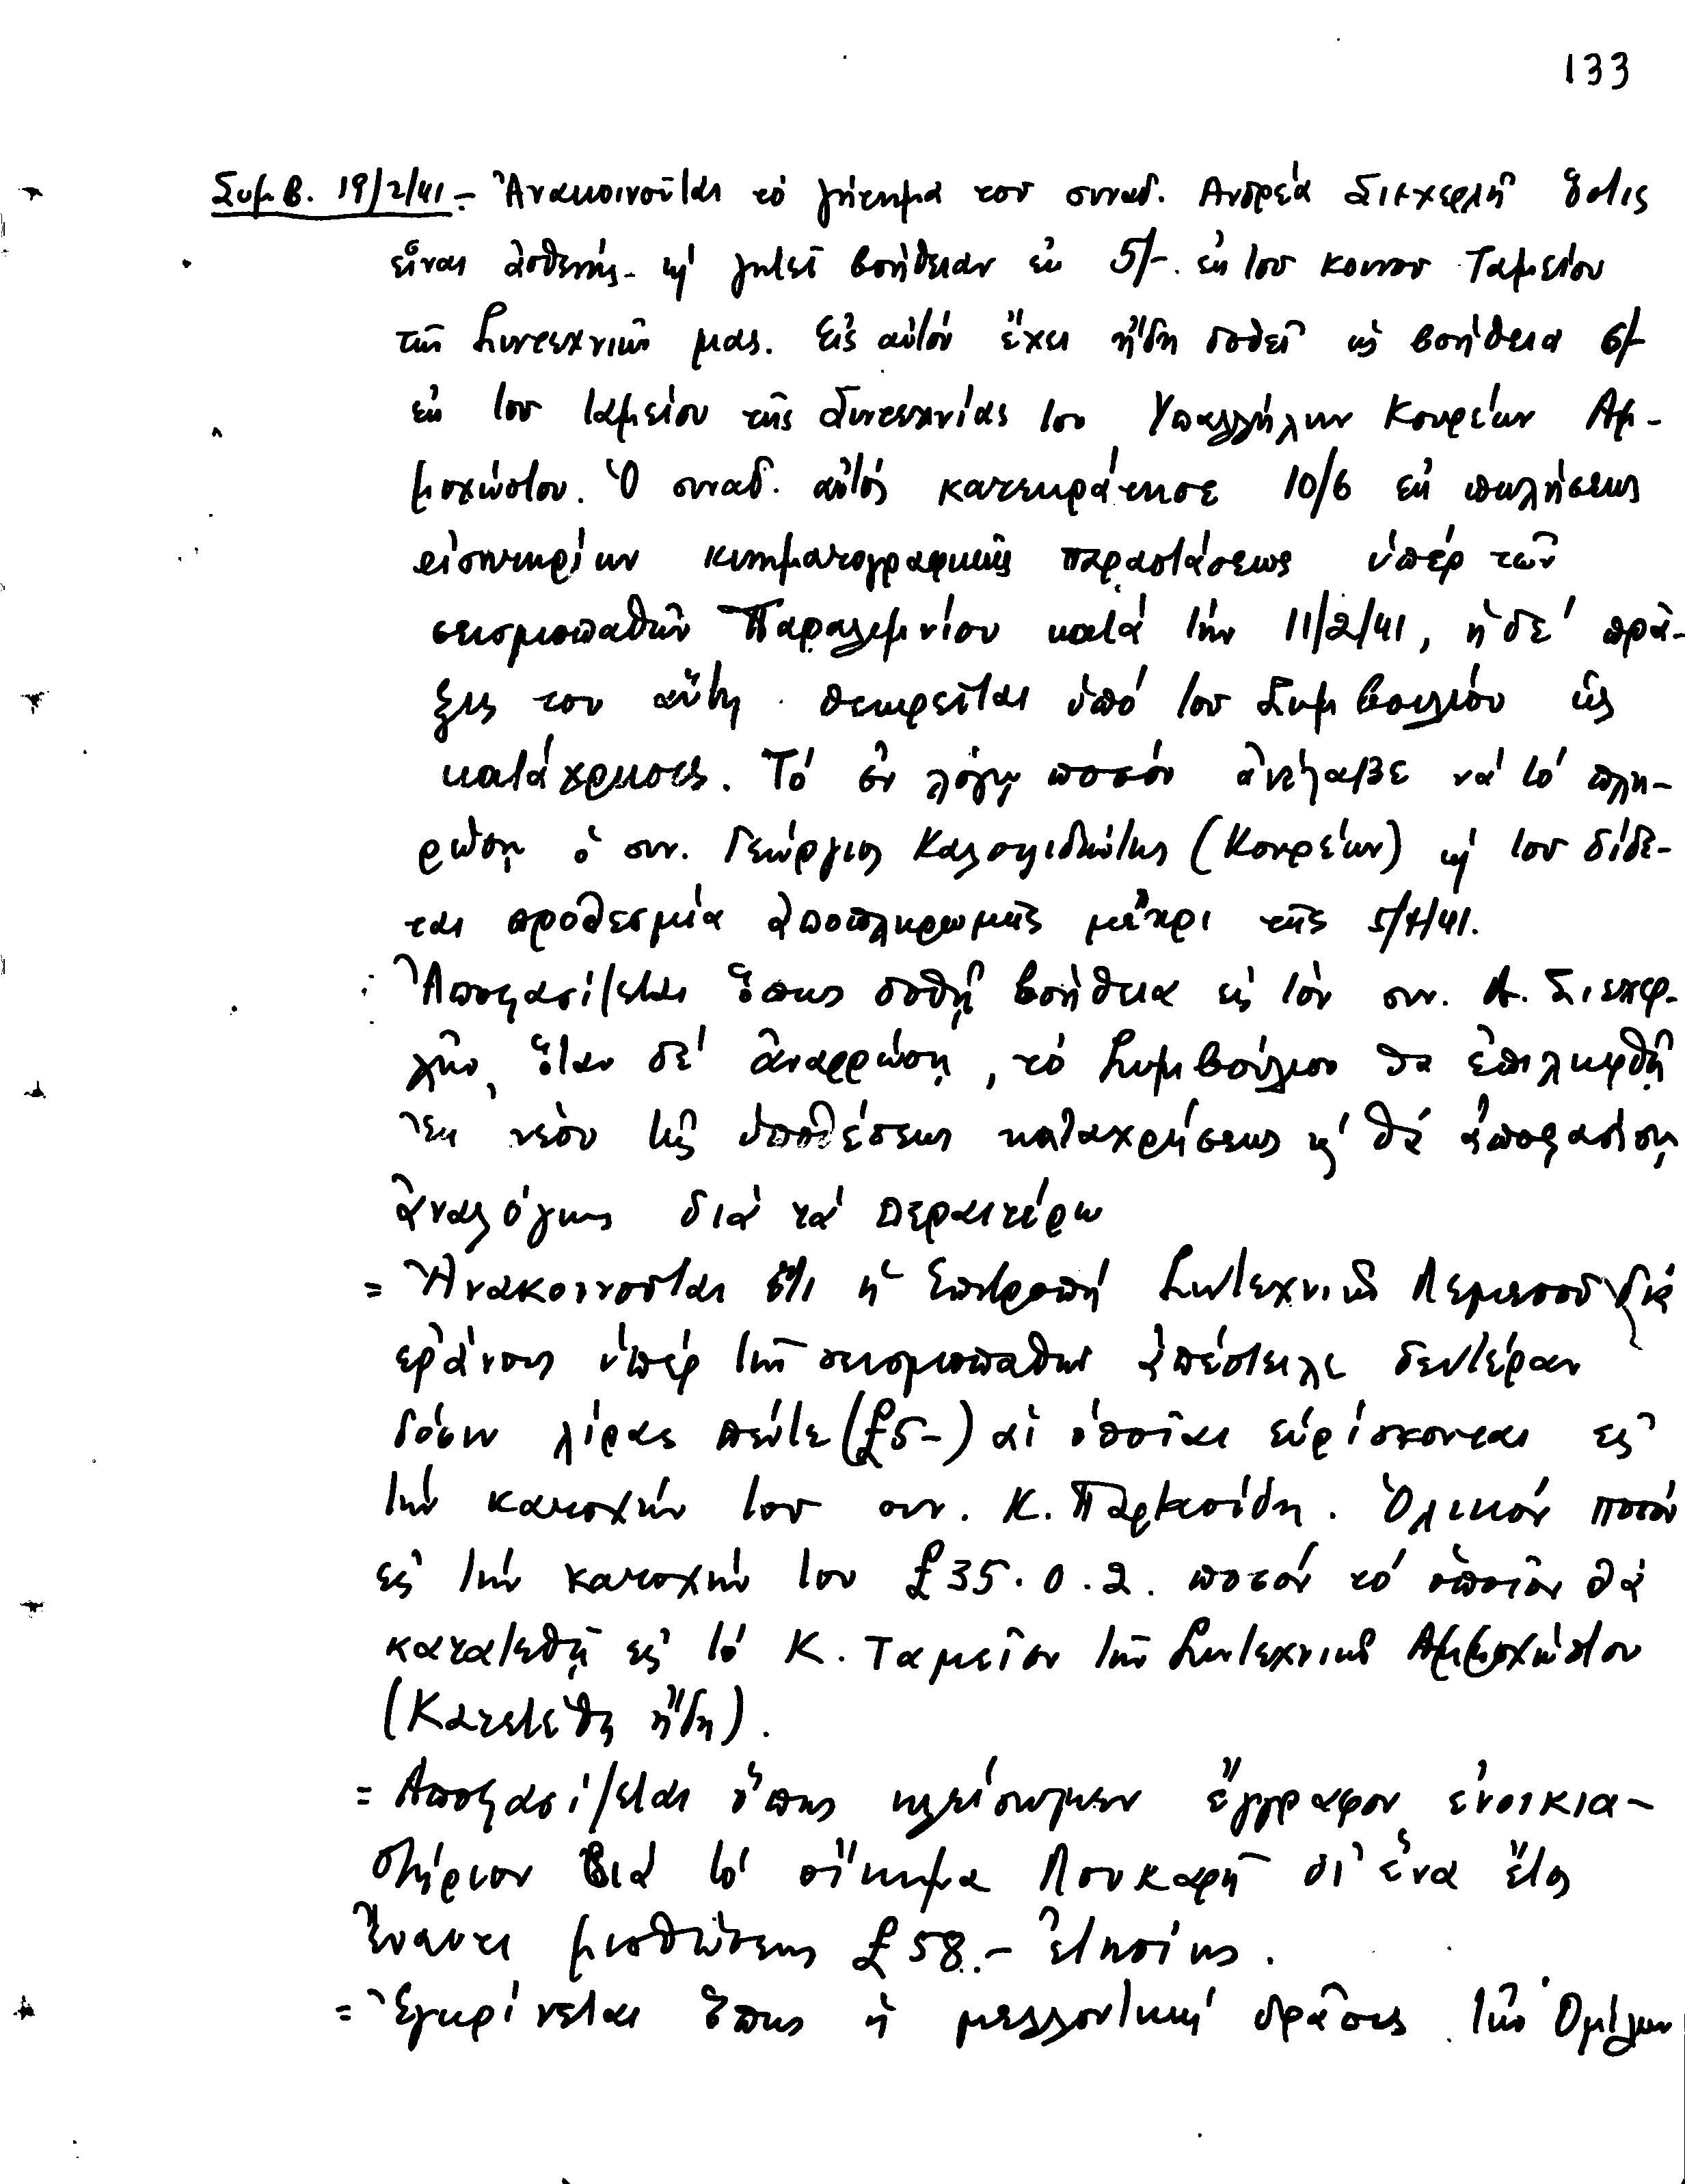 133
Συμβ. 19/2/41 - Ἀνακοινοῦται τό ζήτημα του συναδ. Ανδρέα Σιεχερλῆ ὅστις
εἶναι ἀσθενής - κ' ζητεῖ βοήθειαν ἐκ 5/-. ἐκ του κοινου Ταμείου
τῶν Συντεχνιῶν μας. Εἰς αὐτόν ἔχει ἤδη δοθεῖ ὡς βοήθεια 6/-
ἐκ του ταμείου τῆς Συντεχνίας των Υπαλλήλων Κουρέων Αμ-
μοχώστου. Ὁ συναδ. αὐτός κατεκράτησε 10/6 ἐκ πωλήσεως
εἰσιτηρίων κινηματογραφικῆς παραστάσεως ὑπέρ τῶν
σεισμοπαθῶν Παραλιμνίου κατά τήν 11/2/41, ἡ δέ πρᾶ-
ξις του αὕτη θεωρεῖται ὑπό του Συμβουλίου ὡς
κατάχρησις. Τό ἐν λόγῳ ποσόν ἀνέλαβε νά τό πλη-
ρώσῃ ὁ συν. Γεώργιος (Κουρέων) κ' του δίδε-
ται προθεσμία ἀποπληρωμῆς μέχρι τῆς 5/4/41.
Ἀποφασίζεται ὅπως δοθῇ βοήθεια εἰς τόν συν. Α. Σιεχερ-
λῆν, ὅταν δέ ἀναρρώσῃ, τό Συμβούλιον θα ἐπιληφθῇ
ἐκ νέου τῆς ὑποθέσεως καταχρήσεως κ' θά ἀποφασίσῃ
ἀναλόγως διά τά περαιτέρω
= Ἀνακοινοῦται ὅτι ἡ Επιτροπή Συντεχνιῶν Λεμεσοῦ δι'
εράνους ὑπέρ τῶν σεισμοπαθῶν ἀπέστειλε δευτέραν
δόσιν λίρας πέντε (£5-) αἱ ὁποῖαι εὑρίσκονται εἰς
τήν κατοχήν του συν. Κ. Παρτασίδη. Ὁλικόν ποσόν
εἰς τήν κατοχήν του £35.0.2. ποσόν τό ὁποῖον θά
κατατεθῇ εἰς τό Κ. Ταμεῖον τῶν Συντεχνιῶν Αμμοχώστου
(Κατετέθη ἤδη).
= Αποφασίζεται ὅπως κλείσωμεν ἔγγραφον ἐνοικια-
στήριον διά τό οἴκημα Λουκαρῆ δι' ἑνα ἔτος
ἔναντι μισθώσεως £58.- ἐτησίως.
= Ἐγκρίνεται ὅπως ἡ μελλοντική δρᾶσις τῶν Ὁμίλων